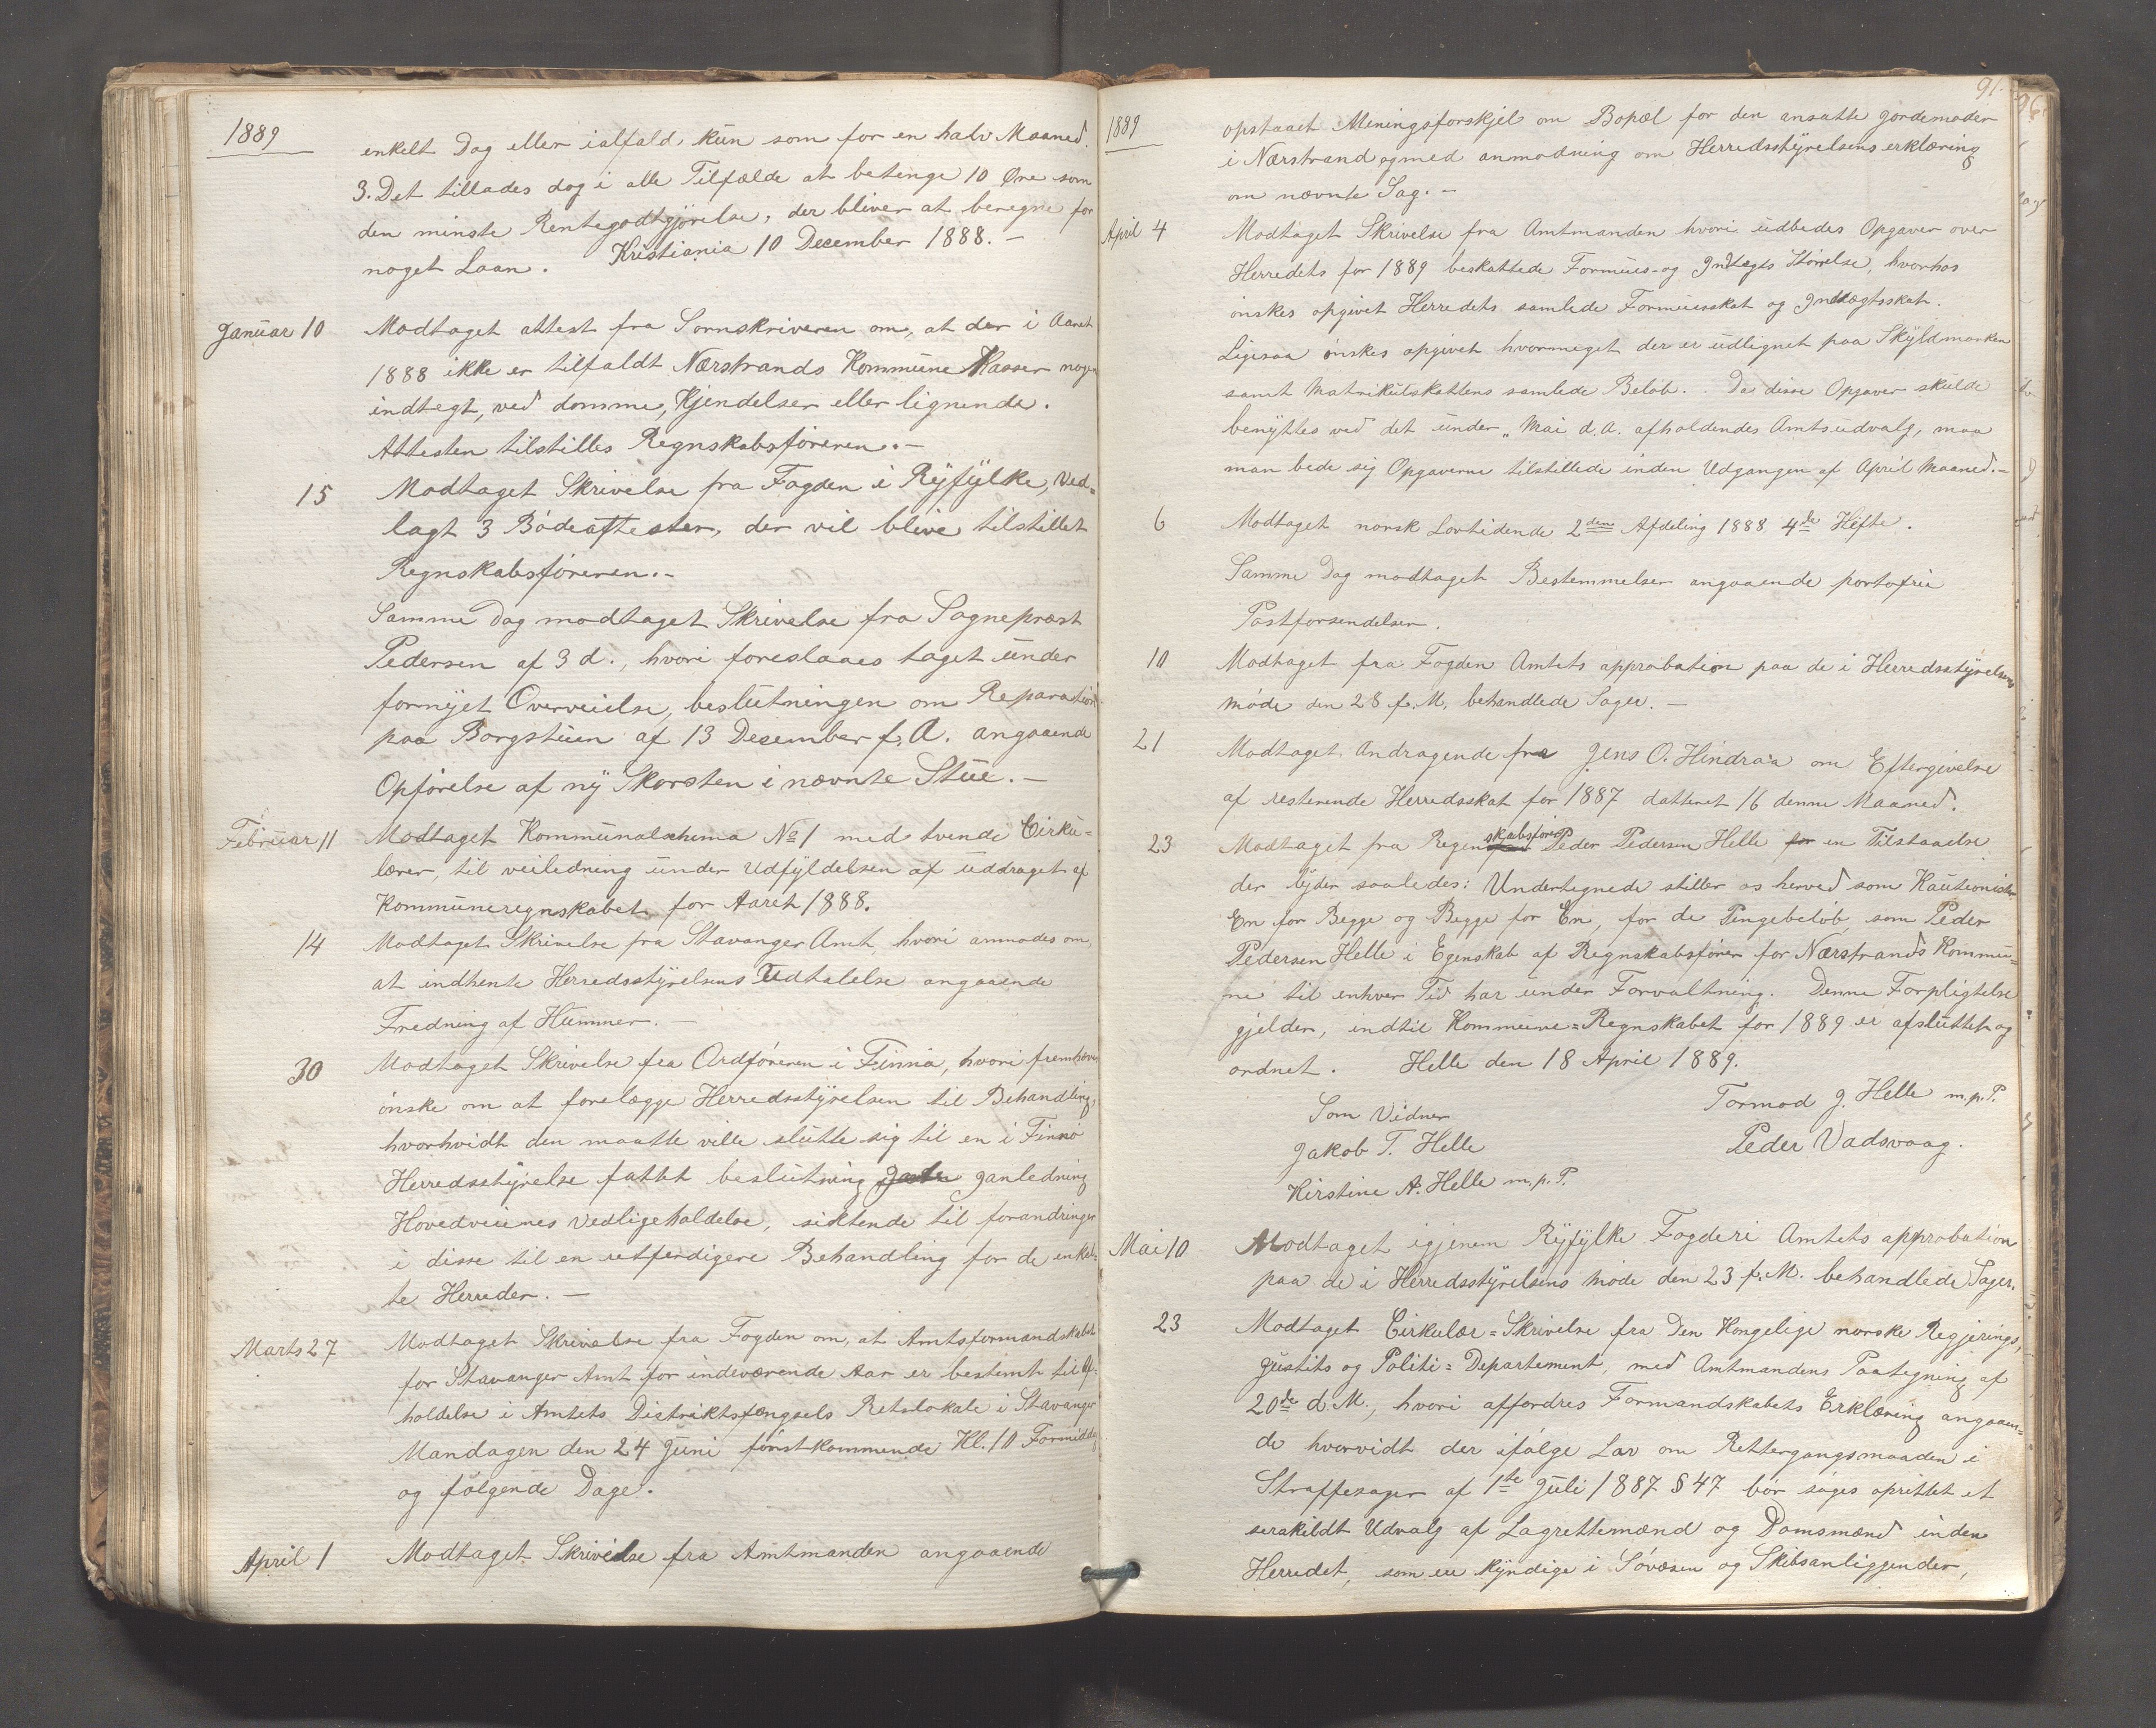 1889
enkelt Dag eller ialfald kun som for en halv Maaned.
3. Det tillades dog i alle Tilfælde at betinge 10 Øre som
den minste Rentegodtgjørelse, der bliver at beregne for
noget Laan. Kristiania 10 December 1888. –
Januar 10 Modtaget attest fra Sornskriveren om, at der i Aaret
1888 ikke er tilfaldt Nærstrands Kommune Kasser nogen
indtegt, ved domme, Kjendelser eller lignende.
Attesten tilstilles Regnskabsføreren. –
15 Modtaget Skrivelse fra Fogden i Ryfylke, Ved=
lagt 3 Bødeattester, der vil blive tilstillet
Regnskabsføreren. –
Samme Dag modtaget Skrivelse fra Sognepræst
Pedersen af 3 d., hvori foreslaaes taget under
fornyet Overveielse, beslutningen om Reparation
paa Borgstuen af 13 December f. A. angaaende
Opførelse af ny Skorsten i nævnte Stue. –
Februar 11 Modtaget Kommunalschema No 1 med tvende Cirku=
lærer, til veiledning under Udfyldelsen af uddraget af
Kommuneregnskabet for Aaret 1888.
14 Modtaget Skrivelse fra Stavanger Amt, hvori anmodes om,
at indhente Herredsstyrelsens Udtalelse angaaende
Fredning af Hummer. –
30 Modtaget Skrivelse fra Ordføreren i Finnø, hvori fremhæves
ønske om at forelægge Herredsstyrelsen til Behandling,
hvorhvidt den maatte ville slutte sig til en i Finnø
Herredsstyrelse fattet beslutning Janledning
Hovedveienes Vedligeholdelse, sigtende til forandringer
i disse til en retferdigere Behandling for de enkel=
te Herreder. –
Marts 27 Modtaget Skrivelse fra Fogden om, at Amtsformandskabet
for Stavanger Amt for indeværende Aar er bestemt til Af=
holdelse i Amtets Distriktsfængsels Retslokale i Stavanger
Mandagen den 24 Juni førstkommende Kl. 10 Formiddag
og følgende Dage.
April 1 Modtaget Skrivelse fra Amtmanden angaaende
91.
96
1889
opstaaet Meningsforskjel om Bopæl for den ansatte gordemoder
i Nærstrand og med anmodning om Herredsstyrelsens erklæring
om nævnte Sag. –
April 4 Modtaget Skrivelse fra Amtmanden hvori udbedes Opgaver over
Herredets for 1889 beskattede Formues- og Indtægts Størrelse, hvorhos
ønskes opgivet Herredets samlede Formuesskat og Indtægtsskat.
Ligesaa ønskes opgivet hvormeget der er udlignet paa Skyldmarken
samt Matrikulskattens samlede Beløb. Da disse Opgaver skulde
benyttes ved det under „ Mai d. A. afholdendes Amtsudvalg, maa
man bede sig Opgaverne tilstillede inden Udgangen af April Maaned. –
6 Modtaget norsk Lovtidende 2den Afdeling 1888 4de Hefte.
Samme Dag modtaget Bestemmelser angaaende portofrie
Postforsendelser.
10 Modtaget fra Fogden Amtets approbation paa de i Herredsstyrelsens
møde den 28 f. M. behandlede Sager. –
21 Modtaget Andragende fra Jens O. Hindraa om Eftergivelse
af resterende Herredsskat for 1887 datteret 16 denne Maaned.
23 Modtaget fra Regenskabsfører Peder Pedersen Helle for en Tilstaaelse
der lyder saaledes: Undertegnede stiller os herved som Kautionister
En for Begge og Begge for En, for de Pengebeløb, som Peder
Pedersen Helle i Egenskab af Regnskabsfører for Nærstrands Kommu=
ne til enhver Tid har under Forvaltning. Denne Forpligtelse
gjelder, indtil Kommune=Regnskabet for 1889 er afsluttet og
ordnet. Helle den 18 April 1889.
Som Vidner
Tormod J. Helle m.p.P.
Jakob T. Helle
Peder Vadsvaag.
Kirstine A. Helle m.p.P.
Mai 10 Modtaget igjenem Ryfylke Fogderi Amtets approbation
paa de i Herredsstyrelsens møde den 23 f. M. behandlede Sager.
23 Modtaget Cirkulær=Skrivelse fra Den Kongelige norske Regjerings,
Justits og Politi=Departement, med Amtmandens Paategning af
20de d. M., hvori affordres Formandskabets Erklæring angaaen=
de hvorvidt der ifølge Lov om Rettergangsmaaden i
Straffesager af 1ste Juli 1887 § 47 bør søges oprettet et
serskildt Udvalg af Lagrettemænd og Domsmænd inden
Herredet, som er kyndige i Søvæsen og Skibsanliggender,